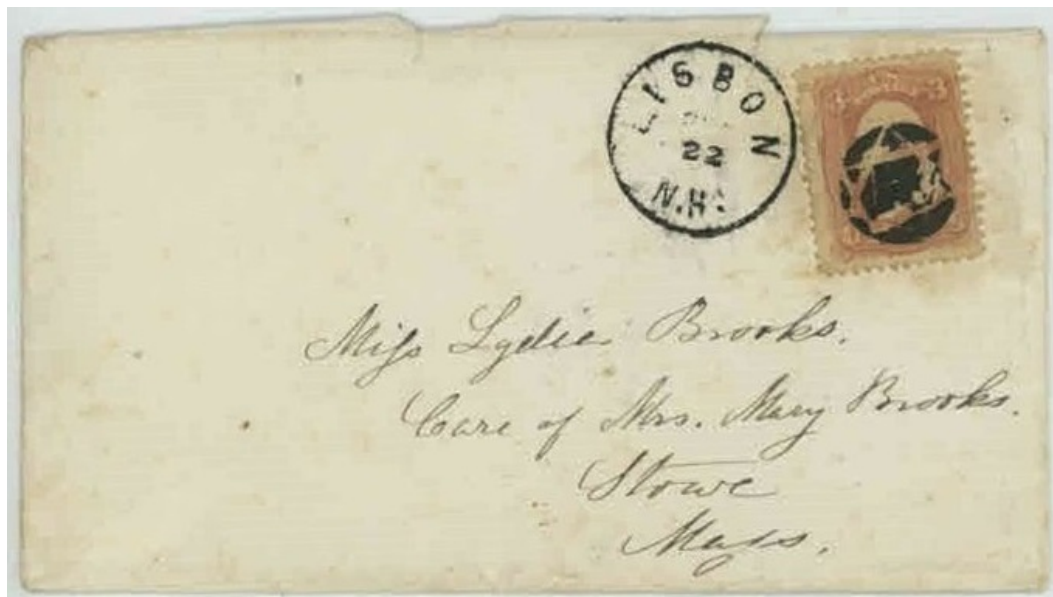 LISBON
22
N.H.
3 3
Miss Lydia Brooks.
Care of Mrs. Mary Brooks.
Stowe
Mass.